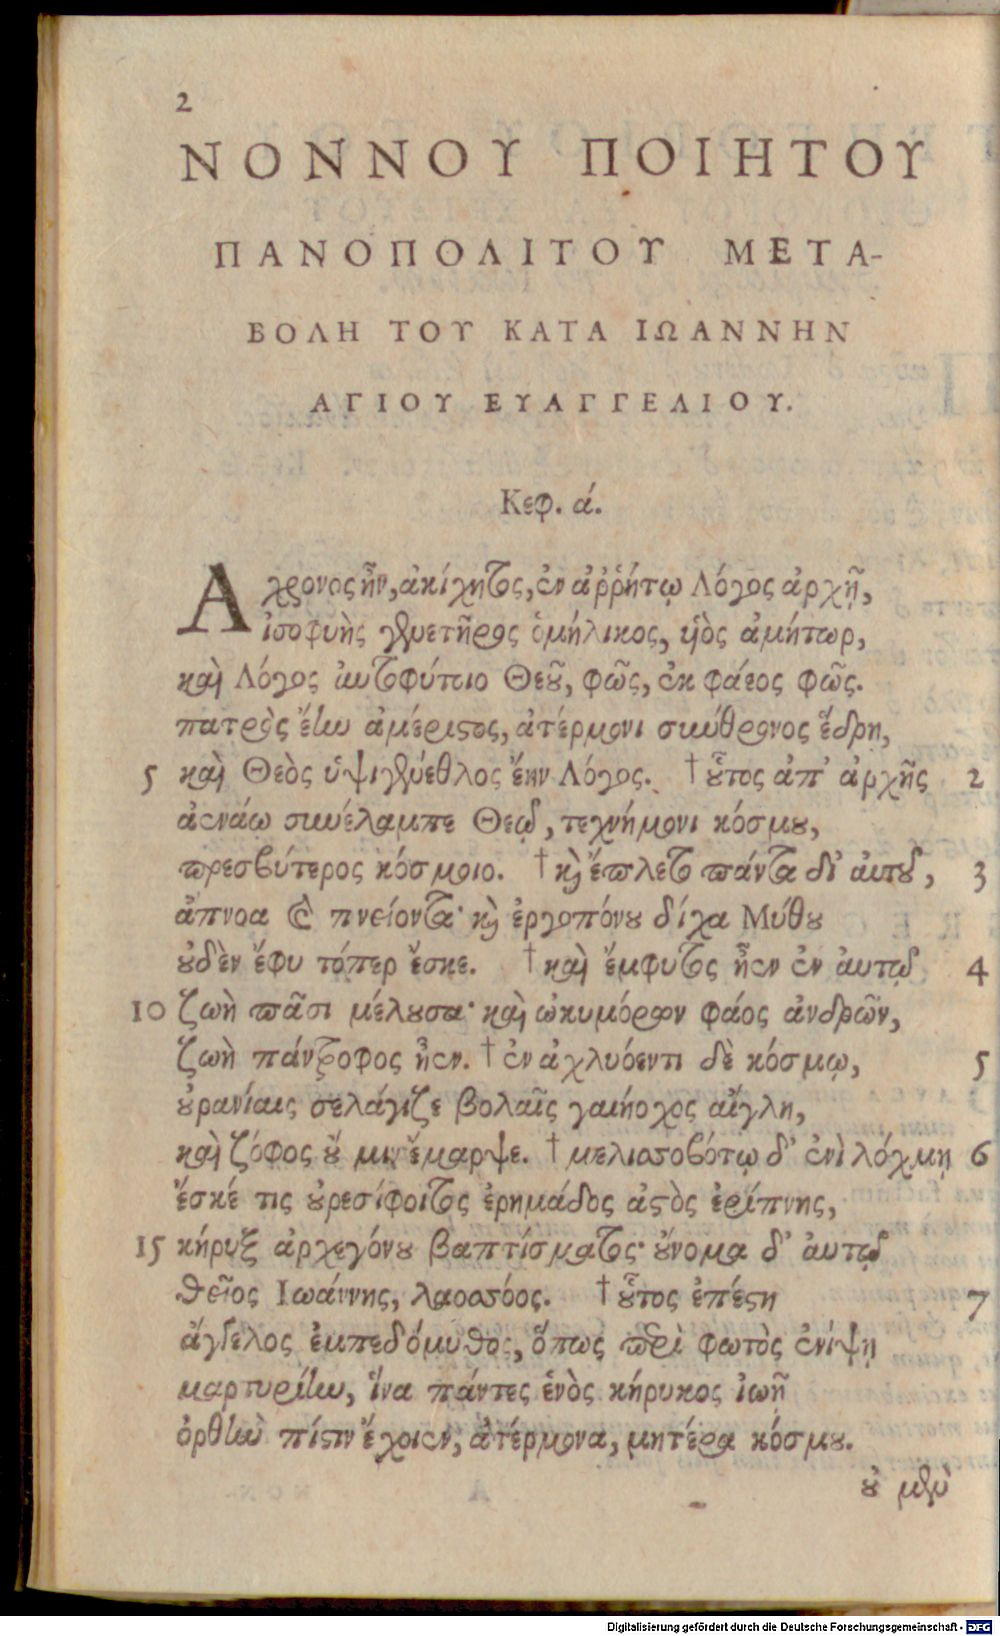 2
ΝΟΝΝΟΥ ΠΟΙΗΤΟΥ
ΠΑΝΟΠΟΛΙΤΟΥ ΜΕΤΑ-
ΒΟΛΗ ΤΟΥ ΚΑΤΑ ΙΩΑΝΝΗΝ
ΑΓΙΟΥ ΕΥΑΓΓΕΛΙΟΥ.
Κεφ. ά.
Αχρονος ἦν, ἀκίχητος, ἐν ἀῤῥήτῳ Λόγος ἀρχῇ,
ἰσοφυὴς γενετῆρος ὁμήλικος, υἱὸς ἀμήτωρ,
καὶ Λόγος αὐτοφύτοιο Θεοῦ, φῶς, ἐκ φάεος φῶς.
πατρὸς ἔην ἀμέριστος, ἀτέρμονι σύνθρονος ἕδρῃ,
5 καὶ Θεὸς ὑψιγένεθλος ἔην Λόγος. † οὗτος ἀπ' ἀρχῆς 2
ἀενάῳ συνέλαμπε Θεῷ, τεχνήμονι κόσμου,
πρεσβύτερος κόσμοιο. † καὶ ἔπλετο πάντα δι' αὐτοῦ, 3
ἄπνοα καὶ πνείοντα· καὶ ἐργοπόνου δίχα Μύθου
οὐδὲν ἔφυ τόπερ ἔσκε. † καὶ ἔμφυτος ἦεν ἐν αὐτῷ 4
10 ζωὴ πᾶσι μέλουσα· καὶ ὠκυμόρων φάος ἀνδρῶν,
ζωὴ πάντροφος ἦεν. † ἐν ἀχλυόεντι δὲ κόσμῳ, 5
οὐρανίαις σελάγιζε βολαῖς γαιήοχος αἴγλη,
καὶ ζόφος οὔ μιν ἔμαρψε. † μελισσοβότῳ δ' ἐνὶ λόχμῃ 6
ἔσκέ τις οὐρεσίφοιτος ἐρημάδος ἀστὸς ἐρίπνης,
15 κήρυξ ἀρχεγόνου βαπτίσματος· οὔνομα δ' αὐτῷ
θεῖος Ιωάννης, λαοσσόος. † οὗτος ἐπέστη 7
ἄγγελος ἐμπεδόμυθος, ὅπως περὶ φωτὸς ἐνίψῃ
μαρτυρίην, ἵνα πάντες ἑνὸς κήρυκος ἰωῇ
ὀρθὴν πίστιν ἔχοιεν, ἀτέρμονα, μητέρα κόσμου.
οὐ μὲν
Digitalisierung gefördert durch die Deutsche Forschungsgemeinschaft - DFG